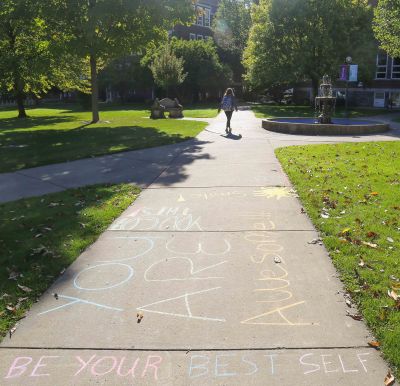 YOU
ARE
Awesome!!!
BE YOUR BEST SELF